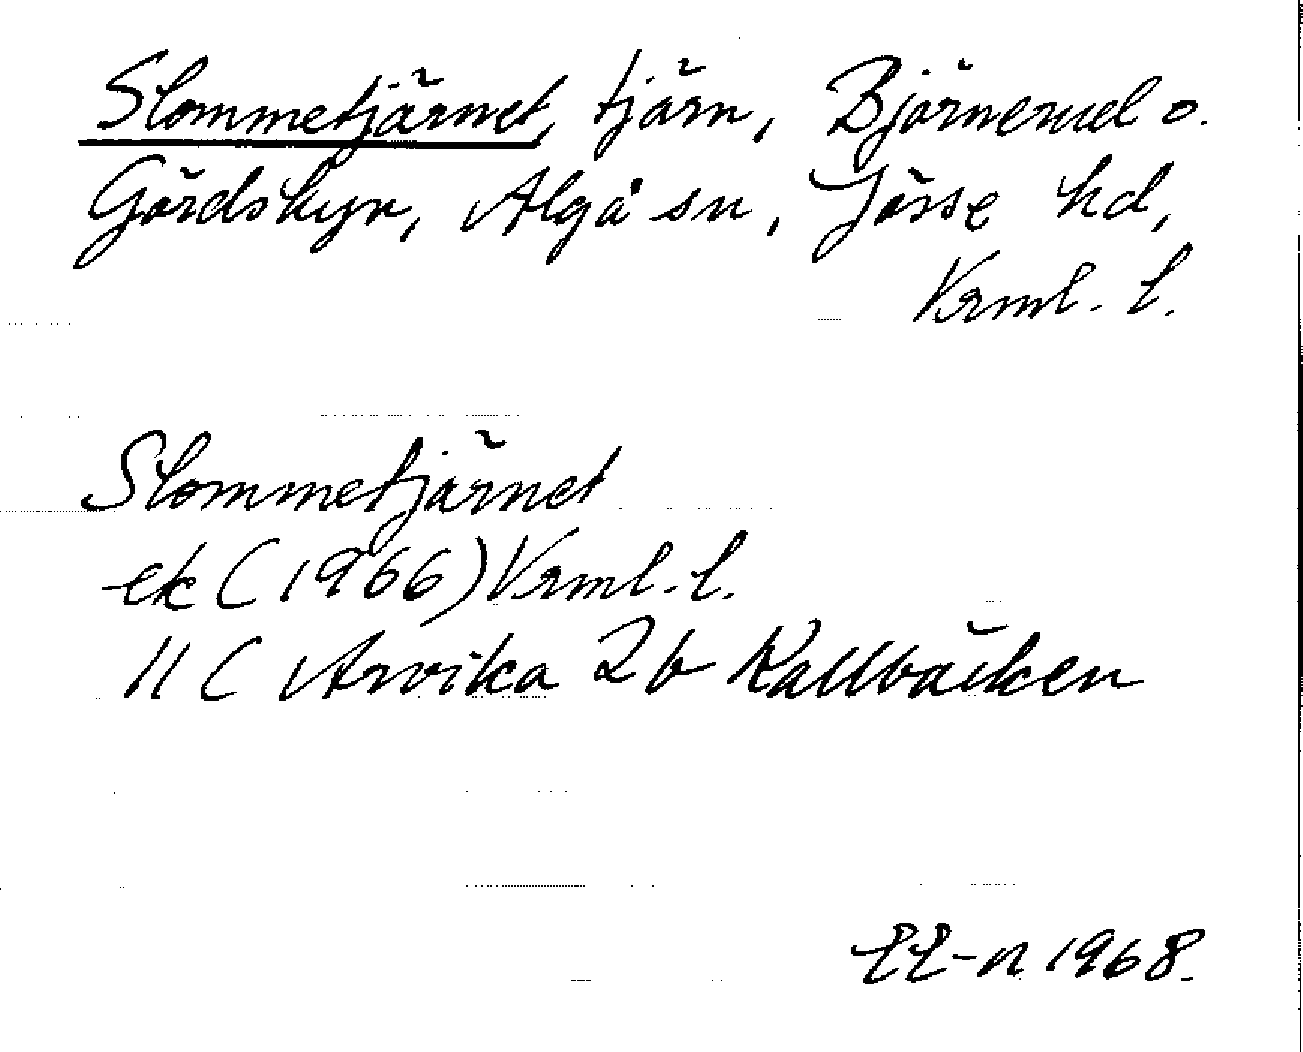 Slommetjärnet, tjärn, Björnerud o.
Gårdskyr, Älgå sn, Jösse hd,
Vrml. l.
Slommetjärnet
ek (1966) Vrml. l.
11 C Arvika 2b Kallbäcken
EE-n 1968.